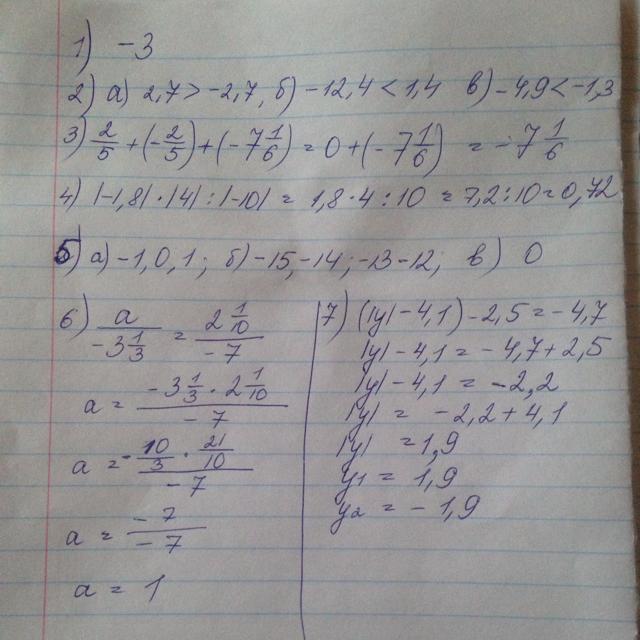 1) -3
2) а) 2,7 > -2,7, б) -12,4 < 1,4 в) -4,9 < -1,3
3) 2/5 + (-2/5) + (-7 1/6) = 0 + (-7 1/6) = -7 1/6
4) |-1,8| · |4| : |-10| = 1,8 · 4 : 10 = 7,2 : 10 = 0,72
5) а) -1, 0, 1; б) -15, -14, -13 -12; в) 0
6) a / (-3 1/3) = (2 1/10) / (-7)
a = (-3 1/3 · 2 1/10) / (-7)
a = (-10/3 · 21/10) / (-7)
a = (-7) / (-7)
a = 1
7) (|y| - 4,1) - 2,5 = -4,7
|y| - 4,1 = -4,7 + 2,5
|y| - 4,1 = -2,2
|y| = -2,2 + 4,1
|y| = 1,9
y1 = 1,9
y2 = -1,9